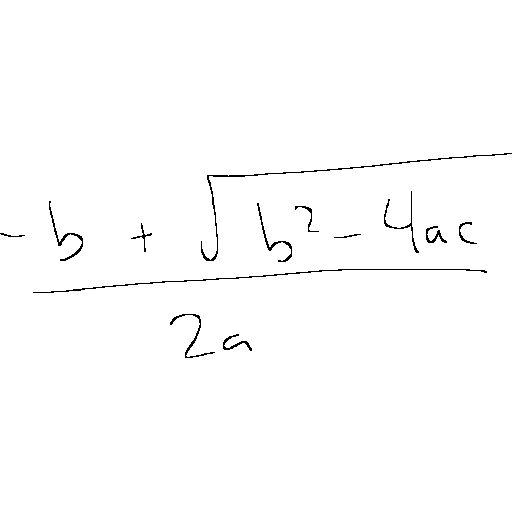 -b + √(b² - 4ac)
2a